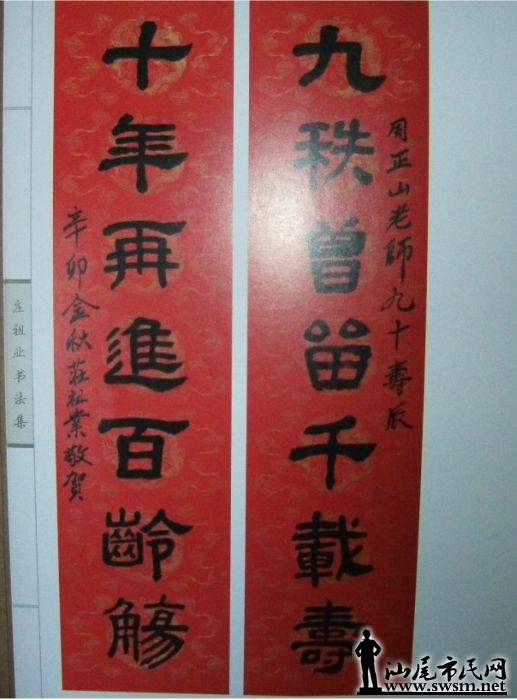 周正山老師九十壽辰
九秩曾留千載壽
十年再進百齡觴
辛卯金秋莊祖業敬賀
庄祖业书法集
汕尾市民网
www.swsm.net